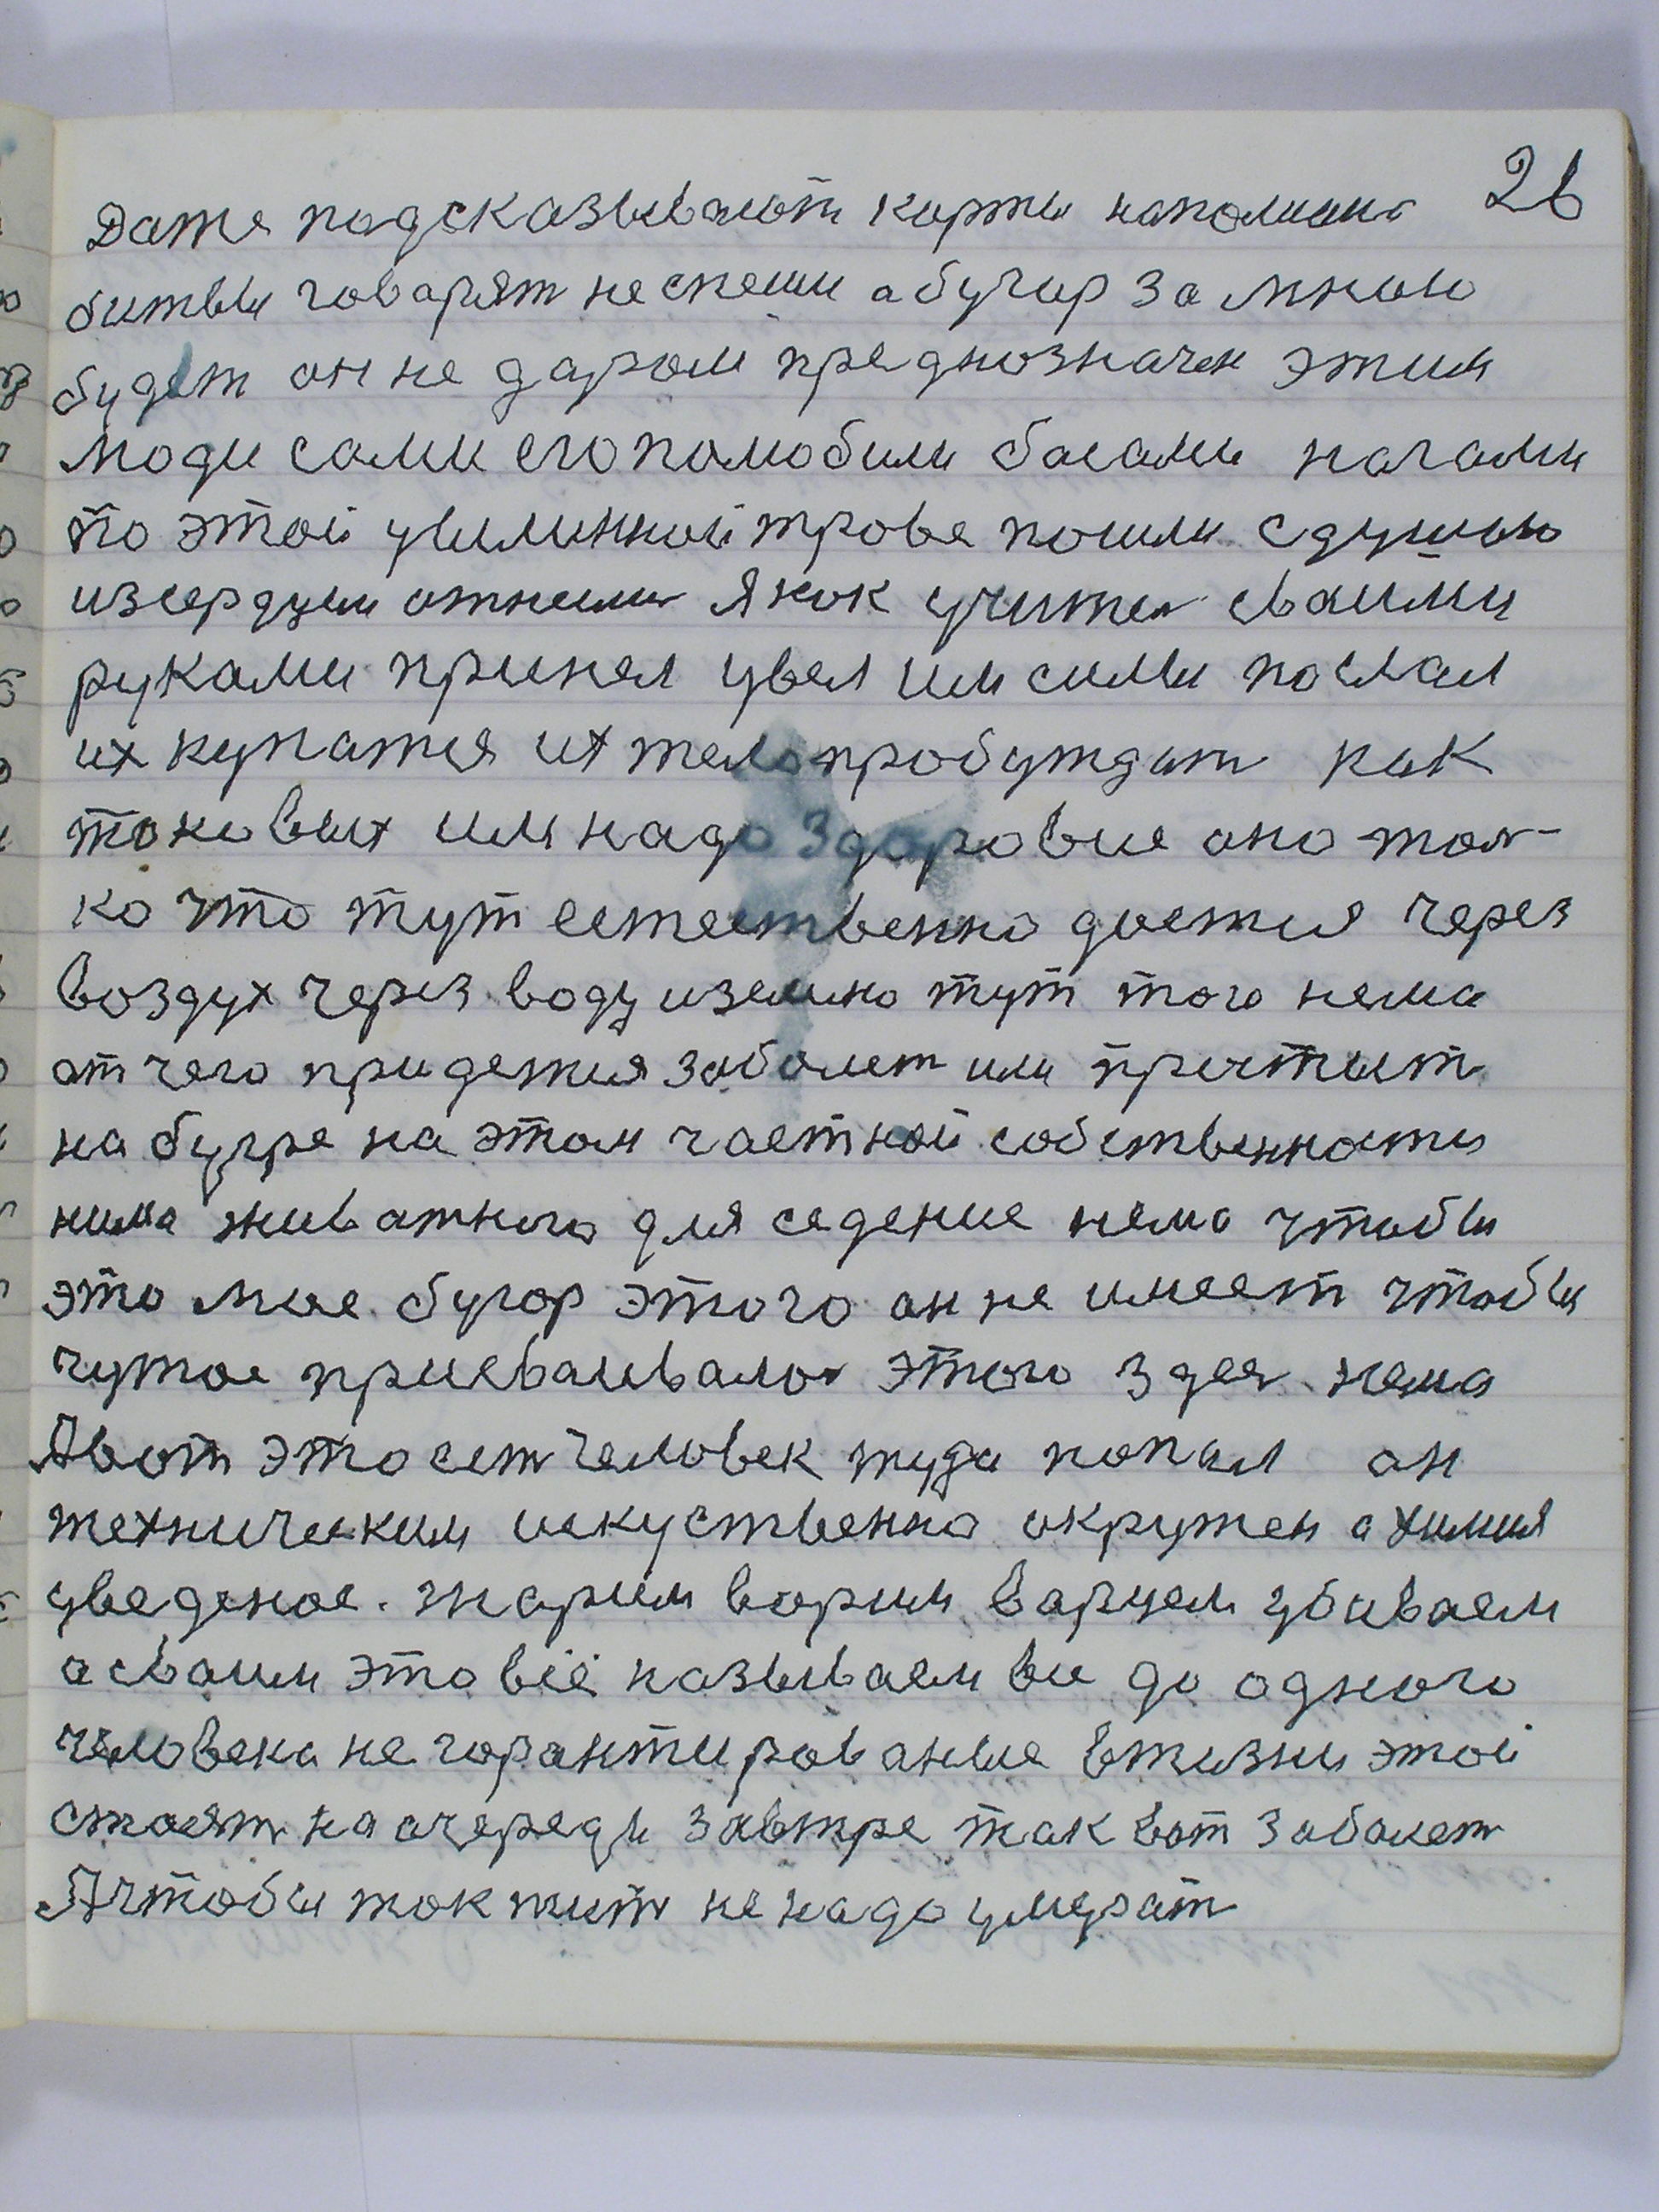 26
Даже подсказывают карты наполиона
битвы говарят не спеши а бугор за мною
будет он не даром преднозначен этим
люди сами его полюбили басами ногами
по этой увилинной трове пошли с душою
и з сердцем отнеслис Я як учител сваими
руками принял увел им силы послал
их купатся их тело пробуждат как
токовых им надо здаровие оно тол-
ко что тут естественно дается через
воздух через воду и землю тут того нема
от чего придется заболет или прстыт
на бугре на этом частной собственности
нима живатного для седение немо чтобы
это мое бугор этого он не имеет чтобы
чужое присваивалос этого здес нема
А вот это сет человек туда попал он
техническим искуственно окружен а химия
уведеное. жарим варим варуем убиваем
а сваим это всё называем все до одного
человека не гарантированые в жизни этой
стоят на очереди завтре так вот заболет
А чтобы так жит не надо умерат